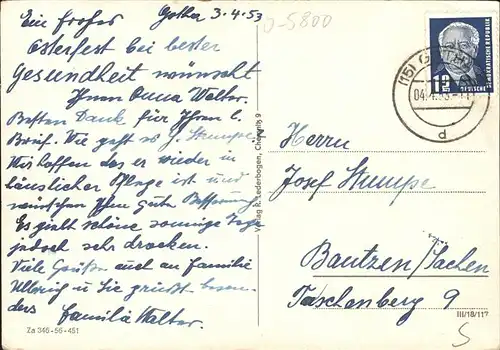 Ein frohes Gotha 3.4.53
Osterfest bei bester
Gesundheit wünscht
Ihnen Anna Walter.
Besten Dank für Ihren l.
Brief. Wie geht es H. Stumpe.
Wir hoffen das er wieder in
häuslicher Pflege ist und
wünschen Ihm gute Besserung
Es giebt schöne sonnige Tage
jedoch sehr trocken.
Viele Grüße auch an Familie
Ulbrich u. Sie grüßt beson-
ders Familie Walter.
Za 345-56-451
Verlag R. Lederbogen, Chemnitz 9
J-5800
12
DEUTSCHE DEMOKRATISCHE REPUBLIK
(15) GOTHA
04.4.53
d
Herrn
Josef Stumpe
Bautzen/Sachen
Taschenberg 9
III/18/117
S